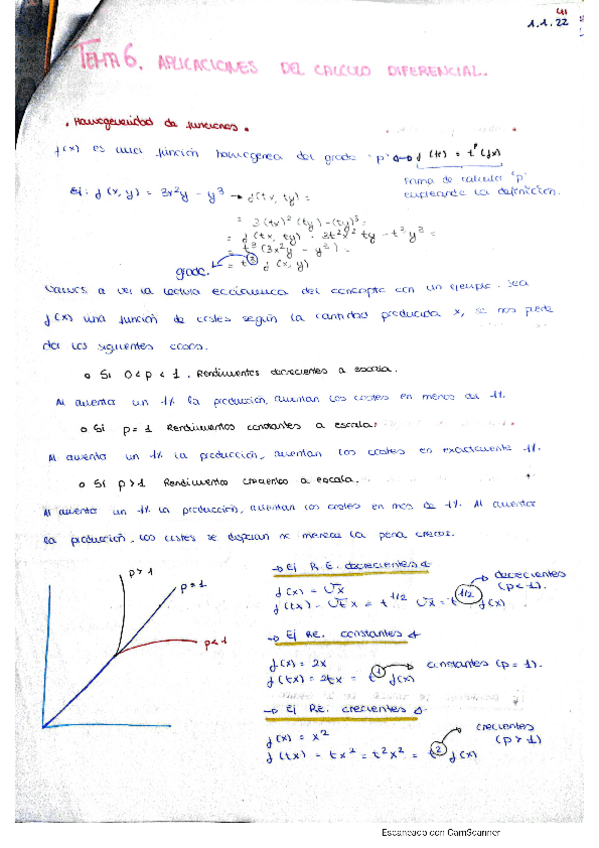 1.1.22
TEMA 6. APLICACIONES DEL CALCULO DIFERENCIAL.
• Homogeneidad de funciones.
f(x) es una función homogénea del grado "p" ⇔ f(tx) = t^p (fx)
Forma de calcular "p"
empleando la definición.
Ej: f(x,y) = 3x²y - y³ → f(tx, ty) =
= 3(tx)² (ty) - (ty)³ =
= f(tx, ty) = 3t²x² ty - t³y³ =
= t³(3x²y - y³) =
grado. = t³ f(x,y)
Vamos a ver la lectura económica del concepto con un ejemplo. Sea
f(x) una función de costes según la cantidad producida x, se nos puede
dar los siguientes casos.
• Si 0<p<1. Rendimientos decrecientes a escala.
Al aumentar un 1% la producción, aumentan los costes en menos del 1%.
• Si p=1 Rendimientos constantes a escala.
Al aumentar un 1% la producción, aumentan los costes en exactamente 1%.
• Si p>1 Rendimientos crecientes a escala.
Al aumentar un 1% la producción, aumentan los costes en mas de 1%. Al aumentar
la producción, los costes se disparan no merece la pena crecer.
p>1
p=1
p<1
→ Ej R.E. decrecientes
f(x) = √x
f(tx) = √t x = t^1/2 √x = t^1/2 f(x)
decrecientes
(p<1).
→ Ej RE. constantes
f(x) = 2x
f(tx) = 2tx = t^1 f(x)
constantes (p=1).
→ Ej RE. crecientes
f(x) = x²
f(tx) = tx² = t²x² = t² f(x)
crecientes
(p>1)
Escaneado con CamScanner